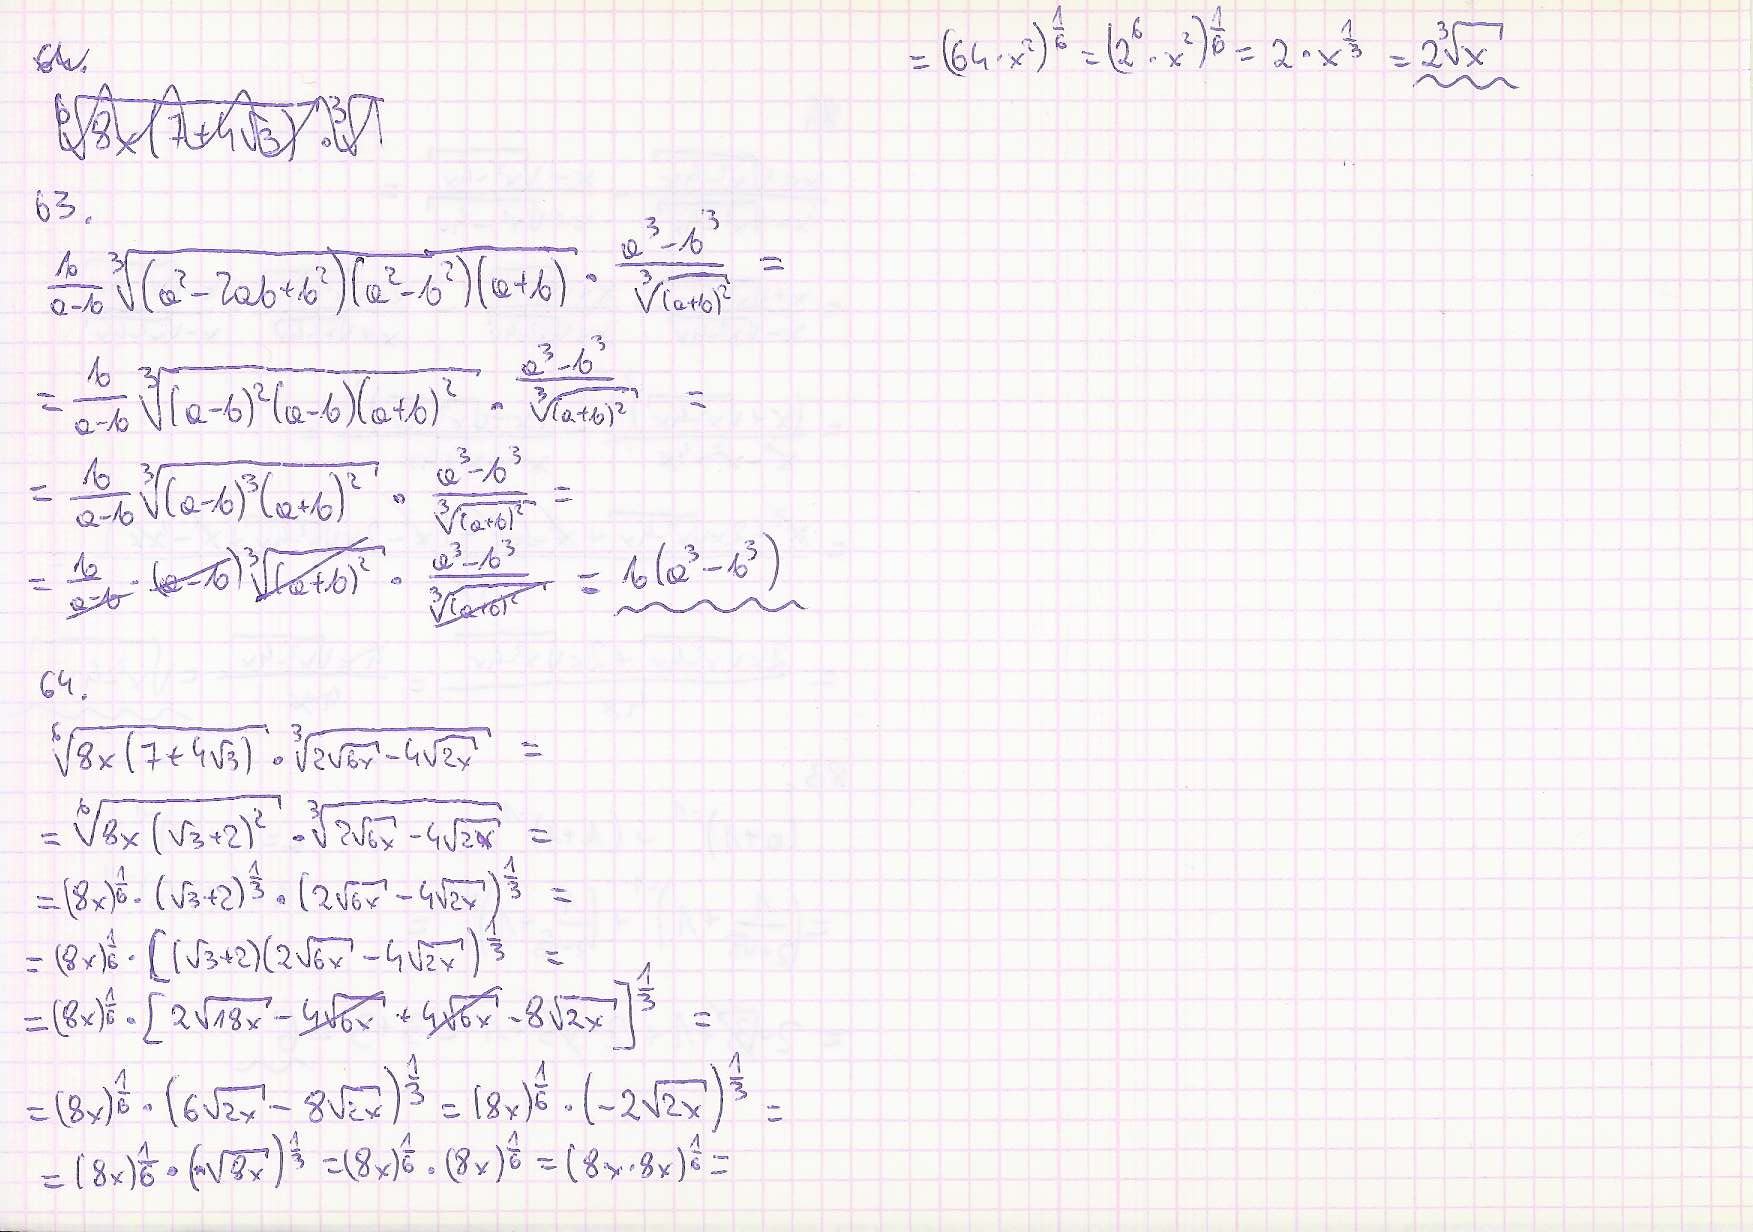 64.
⁶√(8x(7+4√3)) · ³√
63.
b/(a-b) ³√((a²-2ab+b²)(a²-b²)(a+b)) · (a³-b³)/³√((a+b)²) =
= b/(a-b) ³√((a-b)²(a-b)(a+b)²) · (a³-b³)/³√((a+b)²) =
= b/(a-b) ³√((a-b)³(a+b)²) · (a³-b³)/³√((a+b)²) =
= b/(a-b) · (a-b) ³√((a+b)²) · (a³-b³)/³√((a+b)²) = b(a³-b³)
64.
⁶√(8x(7+4√3)) · ³√(2√6x - 4√2x) =
= ⁶√(8x(√3+2)²) · ³√(2√6x - 4√2x) =
= (8x)^(1/6) · (√3+2)^(1/3) · (2√6x - 4√2x)^(1/3) =
= (8x)^(1/6) · [(√3+2)(2√6x - 4√2x)^(1/3) =
= (8x)^(1/6) · [2√18x - 4√6x + 4√6x - 8√2x]^(1/3) =
= (8x)^(1/6) · (6√2x - 8√2x)^(1/3) = (8x)^(1/6) · (-2√2x)^(1/3) =
= (8x)^(1/6) · (-√8x)^(1/3) = (8x)^(1/6) · (8x)^(1/6) = (8x·8x)^(1/6) =
= (64·x²)^(1/6) = (2⁶·x²)^(1/6) = 2·x^(1/3) = 2³√x